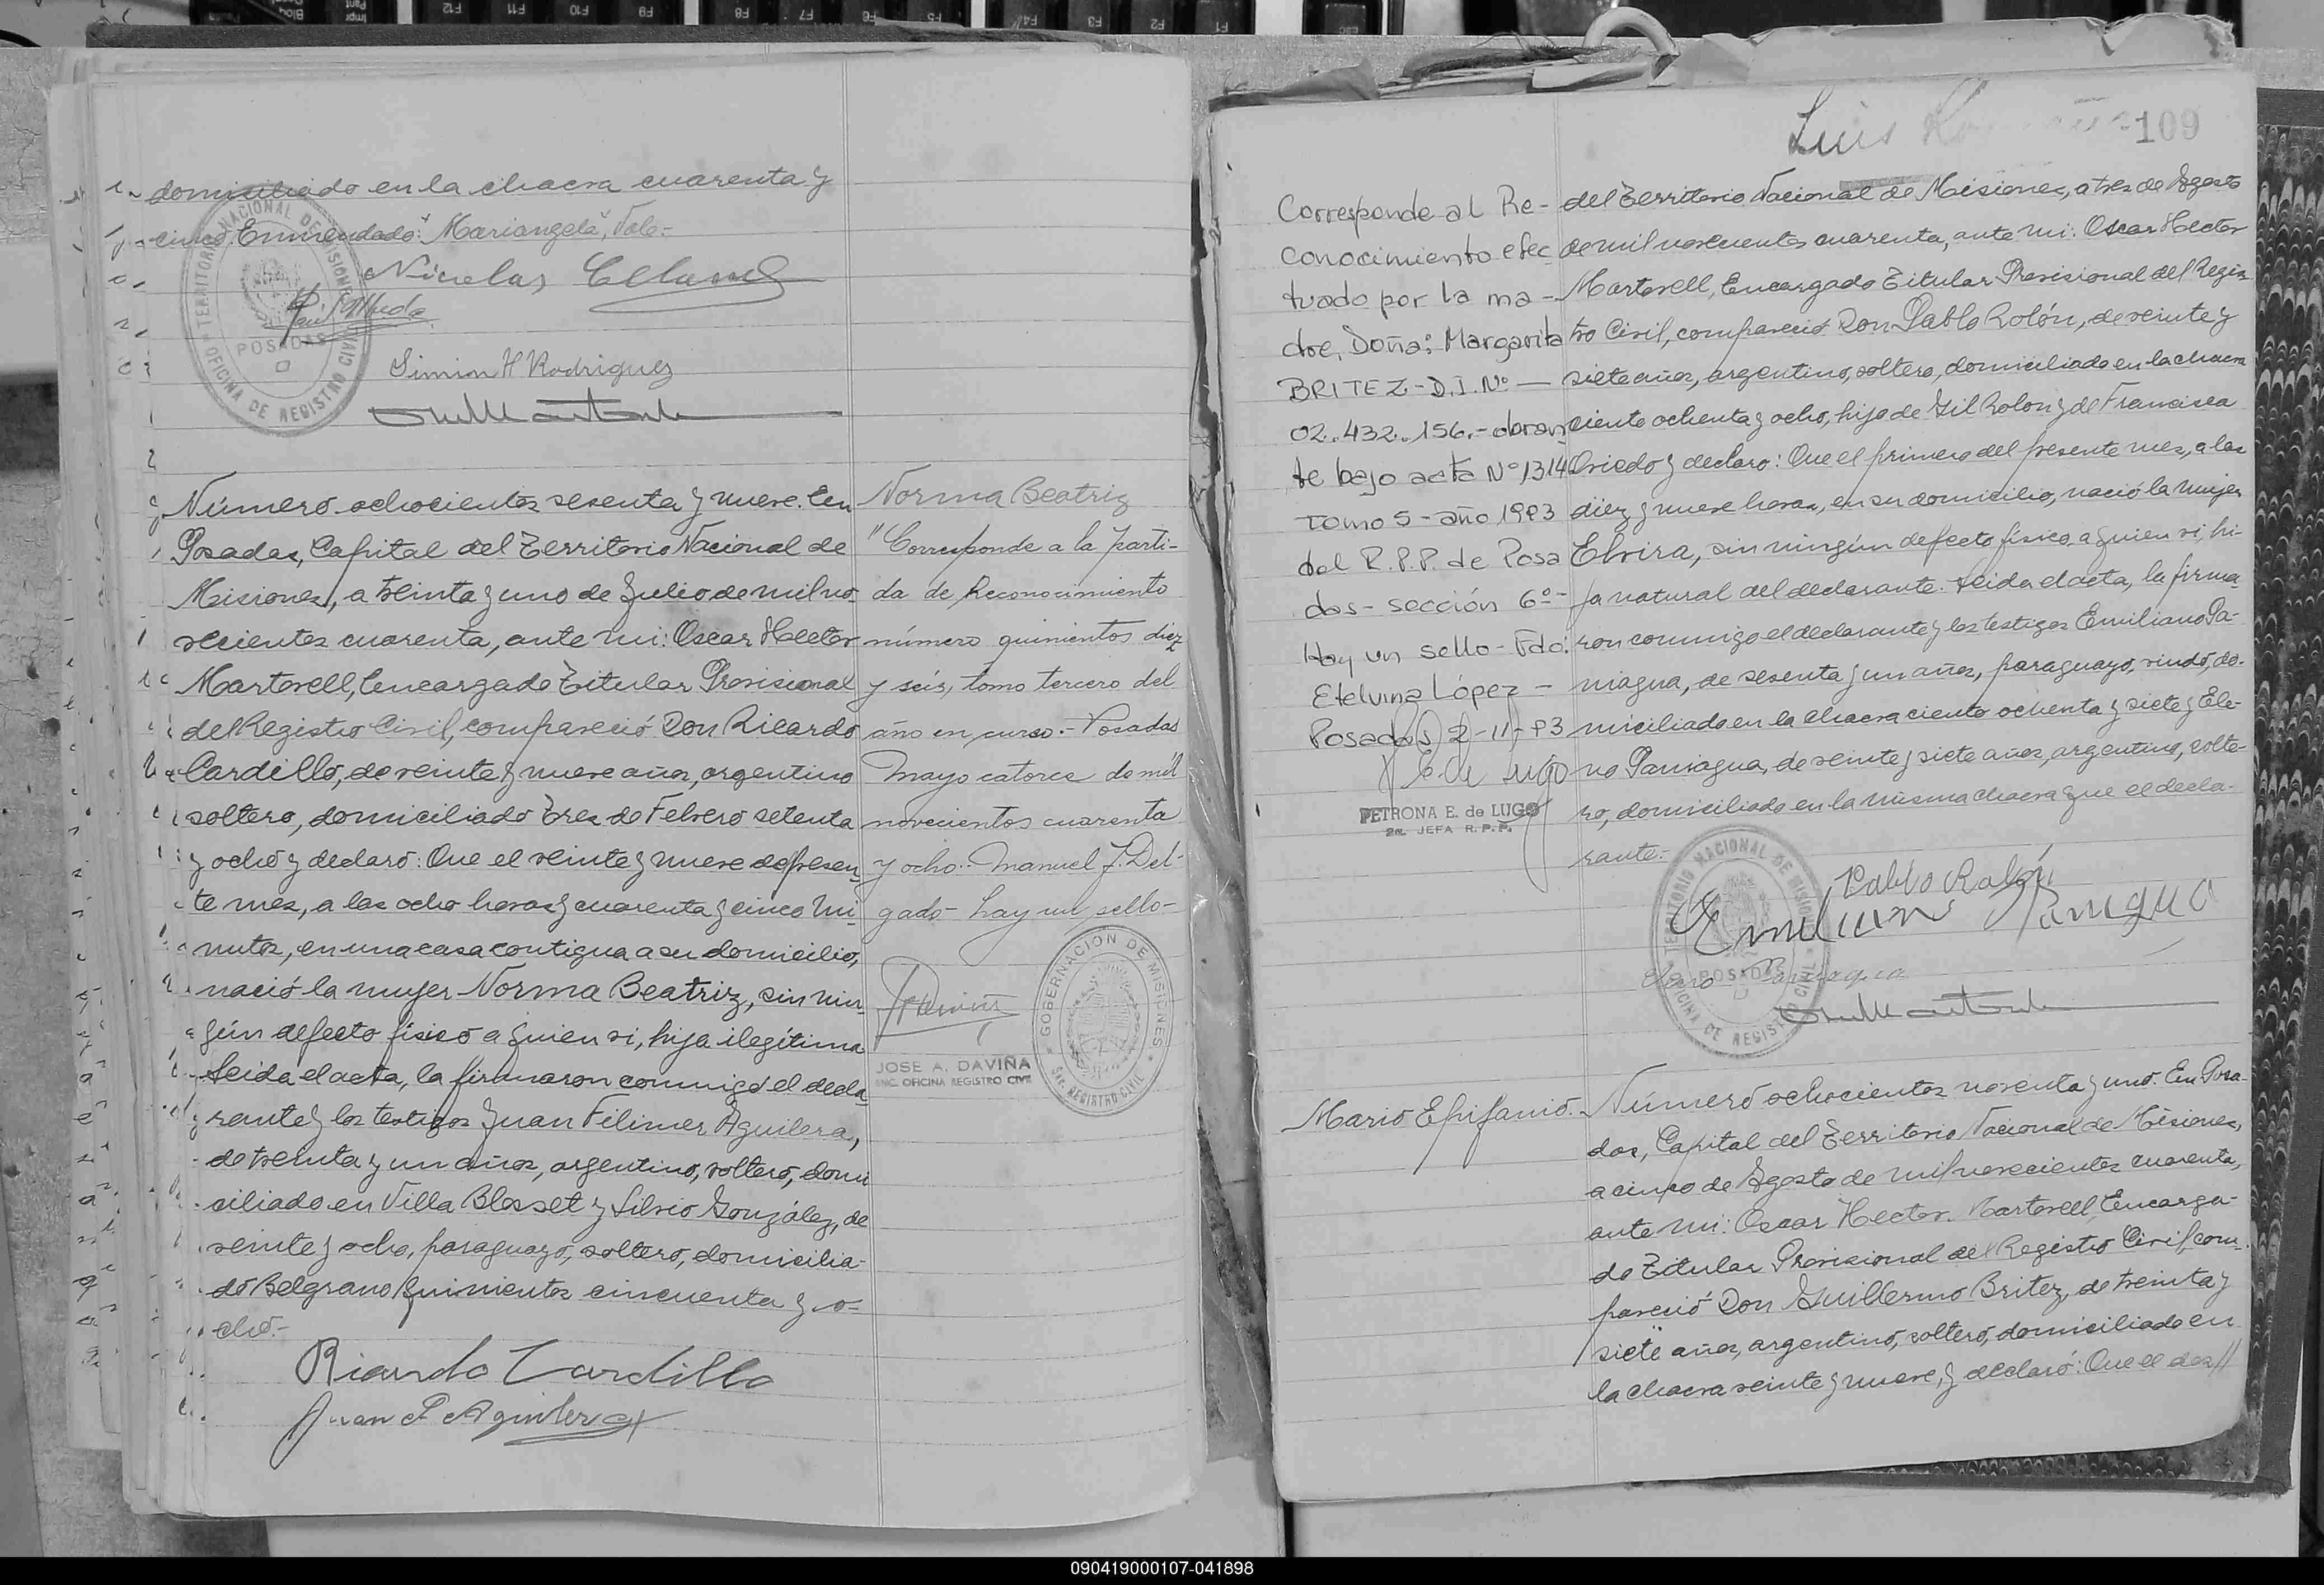 domiciliado en la chacra cuarenta y
cinco. Enmendado: "Mariangela", Vale.-
Nicolas
Simion H Rodriguez
TERRITORIO NACIONAL DE MISIONES
POSADAS
OFICINA DE REGISTRO CIVIL
Número ochocientos sesenta y nueve. En
Posadas, Capital del Territorio Nacional de
Misiones, a treinta y uno de Julio de mil no-
vecientos cuarenta, ante mi: Oscar Hector
Martorell, Encargado Titular Provisional
del Registro Civil, compareció Don Ricardo
Cardillo, de veinte y nueve años, argentino
soltero, domiciliado Tres de Febrero setenta
y ocho y declaró: Que el veinte y nueve del presen-
te mes, a las ocho horas y cuarenta y cinco mi-
nutos, en una casa contigua a su domicilio,
nació la mujer Norma Beatriz, sin nin-
gún defecto físico a quien vi, hija ilegítima
Leida el acta, la firmaron conmigo el decla-
rante y los testigos Juan Filimer Aguilera,
de treinta y un años, argentino, soltero, domi
ciliado en Villa Blosset y Silvio González, de
veinte y ocho, paraguayo, soltero, domicilia-
do Belgrano quinientos cincuenta y o-
cho.-
Ricardo Cardillo
Juan F Aguilera
Norma Beatriz
"Corresponde a la parti-
da de Reconocimiento
número quinientos diez
y seis, tomo tercero del
año en curso.- Posadas
Mayo catorce de mil
novecientos cuarenta
y ocho.- Manuel J. Del-
gado- hay un sello-
JOSE A. DAVIÑA
ENC. OFICINA REGISTRO CIVIL
GOBERNACION DE MISIONES
REGISTRO CIVIL
Luis
109
Corresponde al Re-
conocimiento efec
tuado por la ma-
dre, Doña: Margarita
BRITEZ.- D.I. Nº —
02.432.156.- obran
te bajo acta Nº 1314
Tomo 5 - año 1983
del R.P.P. de Posa
das - sección 6º -
Hay un sello - Fdo:
Etelvina López -
Posadas, 2-11-83
PETRONA E. de LUGO
2a. JEFA R.P.P.
del Territorio Nacional de Misiones, a tres de Agosto
de mil novecientos cuarenta, ante mi: Oscar Hector
Martorell, Encargado Titular Provisional del Regis
tro Civil, compareció Don Pablo Rolón, de veinte y
siete años, argentino, soltero, domiciliado en la chacra
ciento ochenta y ocho, hijo de Gil Rolon y de Francisca
Oviedo y declaro: Que el primero del presente mes, a las
diez y nueve horas, en su domicilio, nació la mujer
Elvira, sin ningún defecto físico, a quien vi, hi-
ja natural del declarante. Leida el acta, la firma
ron conmigo el declarante y los testigos Emiliano Pa-
niagua, de sesenta y un años, paraguayo, viudo, do-
miciliado en la chacra ciento ochenta y siete y Ele-
no Paniagua, de veinte y siete años, argentino, solte-
ro, domiciliado en la misma chacra que el decla-
rante.-
Pablo Rolón
Emiliano Paniagua
Eleno Paniagua
TERRITORIO NACIONAL DE MISIONES
POSADAS
OFICINA DE REGISTRO CIVIL
Mario Epifanio.
Número ochocientos noventa y uno. En Posa-
das, Capital del Territorio Nacional de Misiones,
a cinco de Agosto de mil novecientos cuarenta,
ante mi: Oscar Hector Martorell, Encarga-
do Titular Provisional del Registro Civil, com-
pareció Don Guillermo Britez, de treinta y
siete años, argentino, soltero, domiciliado en
la chacra veinte y nueve, y declaró: Que el dos //
090419000107-041898